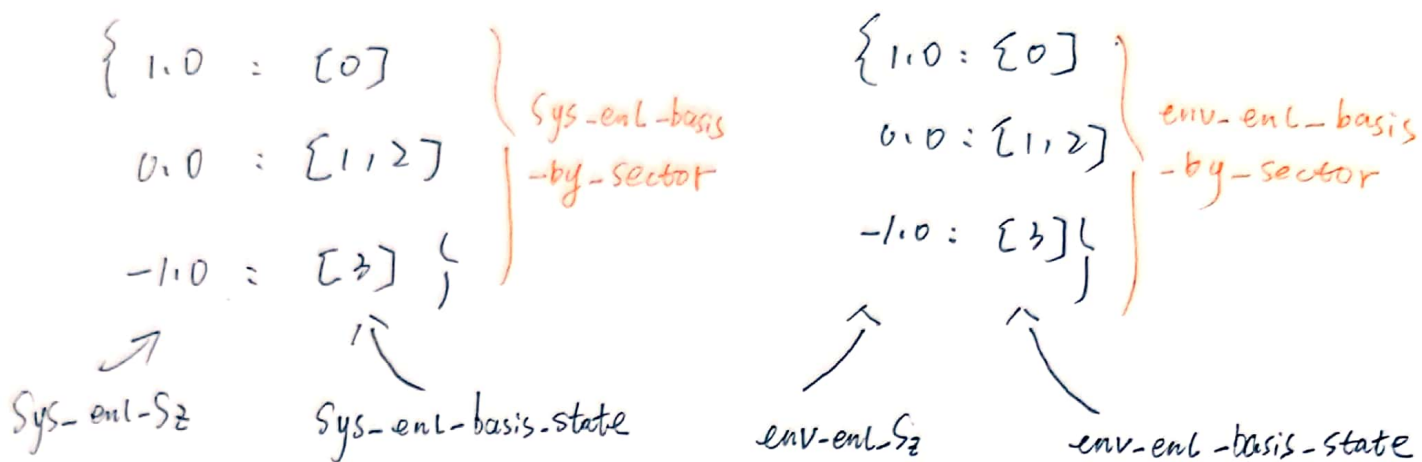 { 1.0 : [0]
0.0 : [1,2]
-1.0 : [3] }
Sys_enl_basis
-by_sector
Sys_enl_Sz
Sys_enl_basis_state
{ 1.0 : [0]
0.0 : [1,2]
-1.0 : [3] }
env_enl_basis
-by_sector
env_enl_Sz
env_enl_basis_state